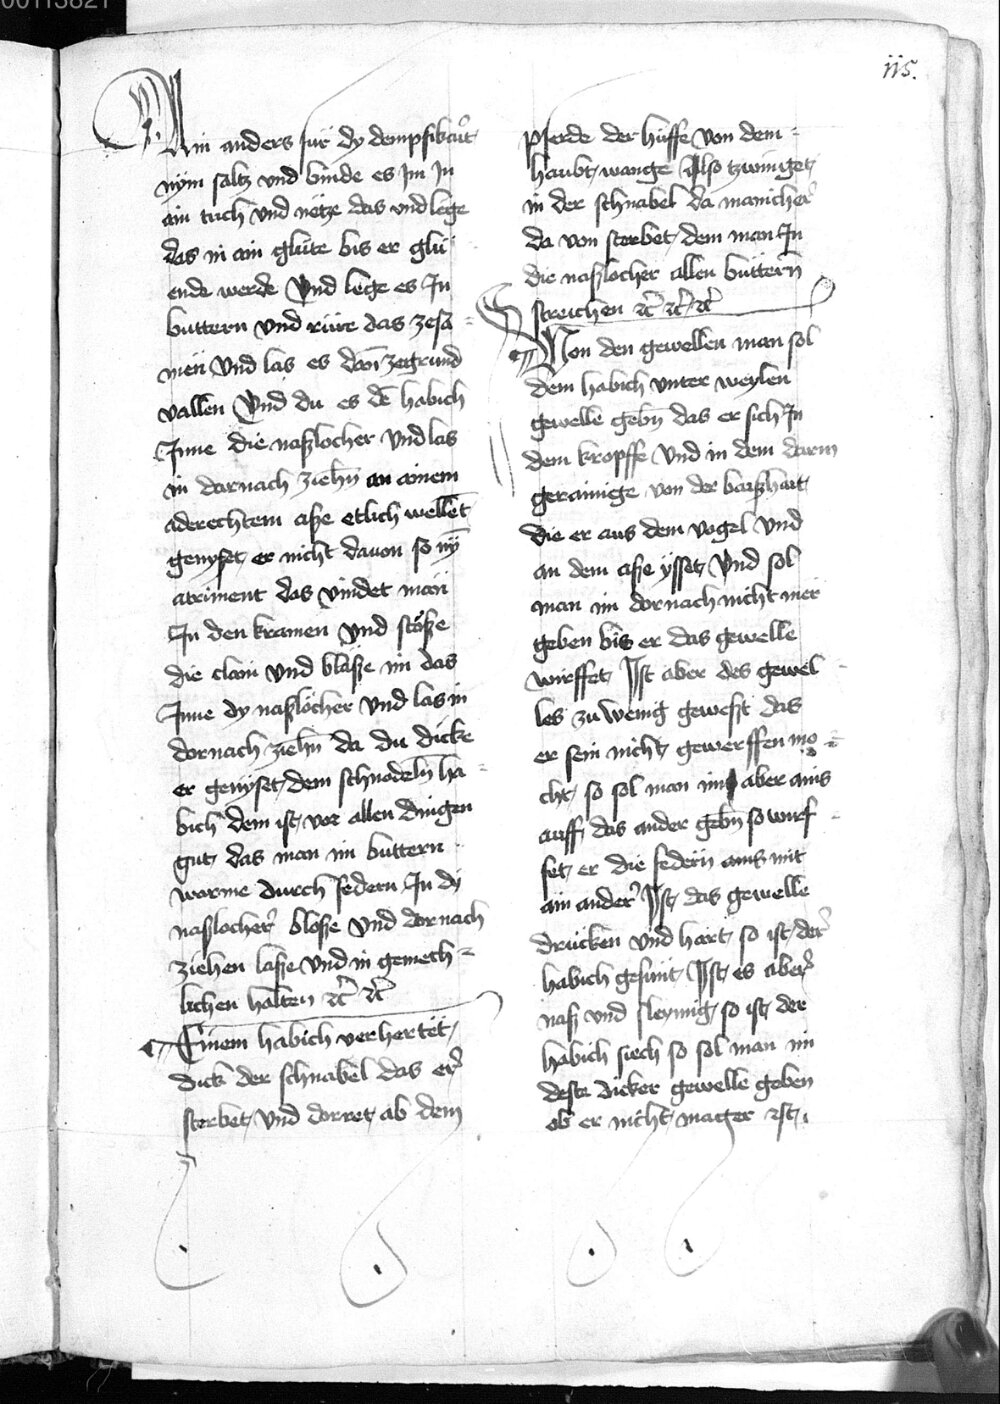 00113821
115.
Ain anders fur dy dempfikait
nym saltz vnd binde es Im In
ain tuch vnd netze das vnd lege
das in ain glute bis er glu
ende werde Vnd lege es In
buttern vnd rure das zesa
men Vnd las es dan zegrund
vallen Vnd du es de habich
Inne die naßlocher Vnd las
in darnach ziehn an ainem
aderechtem aße etlich wellet
genyset er nicht dauon so ny
atriment das vindet man
In den kramen Vnd stoße
die clain Vnd blaße im das
Inne dy naßlocher Vnd las in
dornach ziehn Da du dicke
er genyset, dem schnodeln ha
bich dem ist vor allen dingen
gut das man im buttern
warme durch federn In dy
naßlocher bloße Vnd dornach
ziehen laße Vnd in gemech
lichen halten etc etc
Einem habich verhertet,
dick der schnabel das er
sterbet Vnd dorret ab dem
pferde der huffe von dem
haubt wange Also tzwinget
in der schnabel da manicher
da von sterbet dem man In
die naßlocher allen buttern
streichen etc etc etc
Von den gewellen man sol
dem habich vnter weylen
gewelle gebn das er sich In
dem kropffe Vnd in dem darm
gerainige von der
die er aus dem vogel Vnd
an dem aße ysset, Vnd sol
man im dornach nicht mer
geben bis er das gewelle
wirffet, Ist aber des gewel
les zu wenig gewest das
er sein nicht gewerffen mo
cht, so sol man im aber ains
auff das ander gebn so wurf
fet er die federn ains mit
ain ander Ist das gewelle
drucken vnd hart so ist der
habich gesunt, Ist es aber
naß vnd sleymig, so ist der
habich siech so sol man im
deste dicker gewelle geben
ob er nicht mager ist.